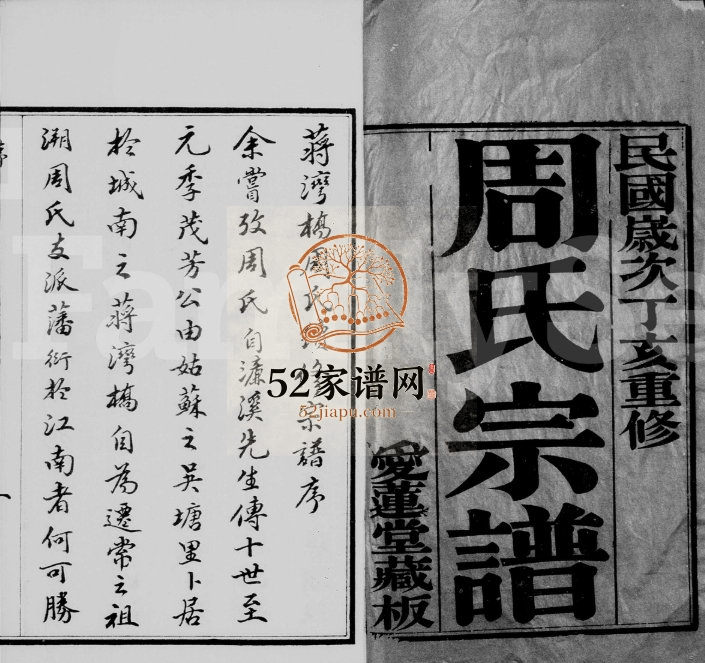 民國歲次丁亥重修
周氏宗譜
愛蓮堂藏板
蔣灣橋周氏宗譜序
余嘗攷周氏自濂溪先生傳十世至
元季茂芳公由姑蘇之吳塘里卜居
於城南之蔣灣橋自為遷常之祖
溯周氏支派蕃衍於江南者何可勝
一
52家谱网
52jiapu.com